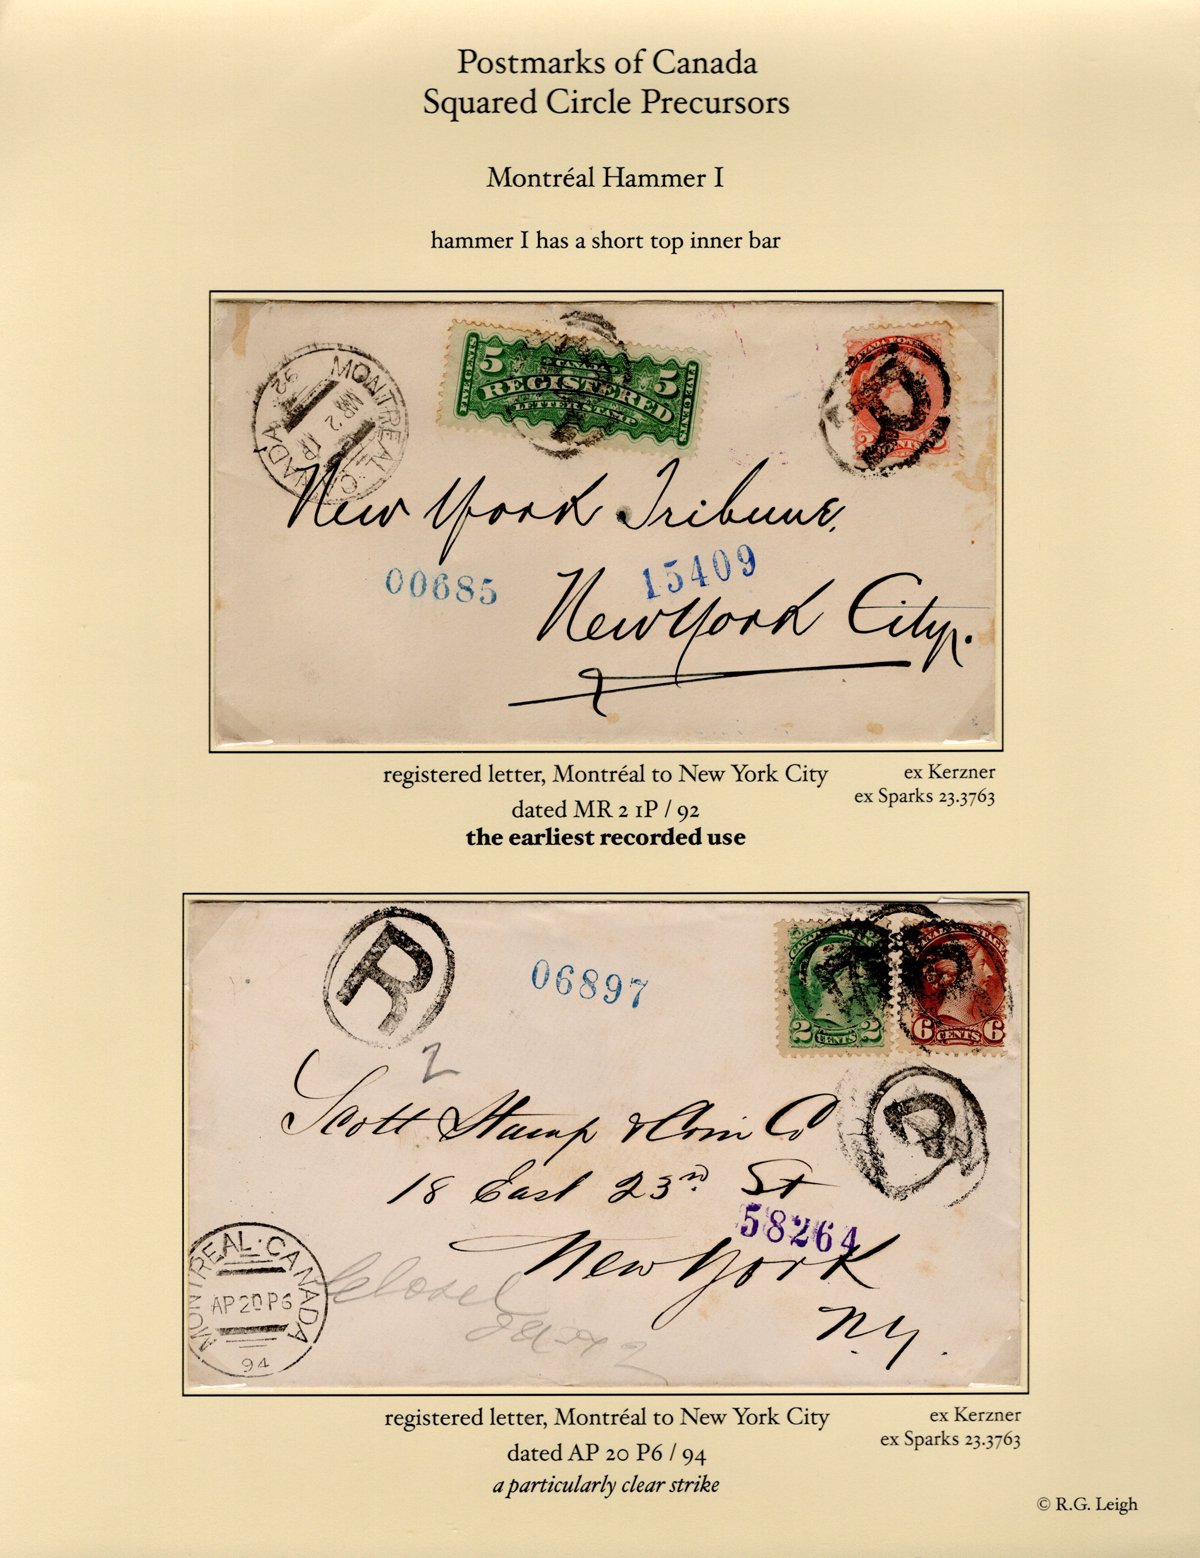 Postmarks of Canada
Squared Circle Precursors
Montréal Hammer I
hammer I has a short top inner bar
MONTREAL · CANADA
MR 2 1P
92
5 CANADA 5
FIVE CENTS REGISTERED FIVE CENTS
LETTER STAMP
R
2 CENTS
New York Tribune.
00685 15409
New York City.
registered letter, Montréal to New York City
ex Kerzner
dated MR 2 1P / 92
ex Sparks 23.3763
the earliest recorded use
R
06897
2 CENTS 2
6 CENTS 6
2
R
Scott Stamp & Coin Co
18 East 23rd St
58264
New York
N.Y.
MONTREAL · CANADA
AP 20 P6
94
registered letter, Montréal to New York City
ex Kerzner
dated AP 20 P6 / 94
ex Sparks 23.3763
a particularly clear strike
© R.G. Leigh